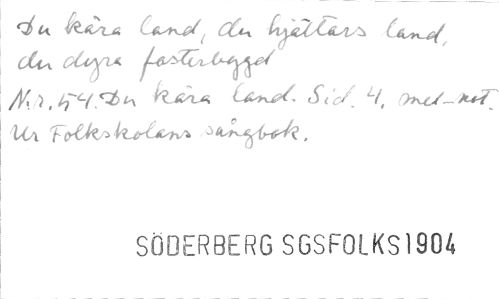 Du kära land, du hjältars land,
du dyra fosterbygd
N:r. 54. Du kära land. Sid. 4. med not.
Ur Folkskolans sångbok.
SÖDERBERG SGSFOLKS1904